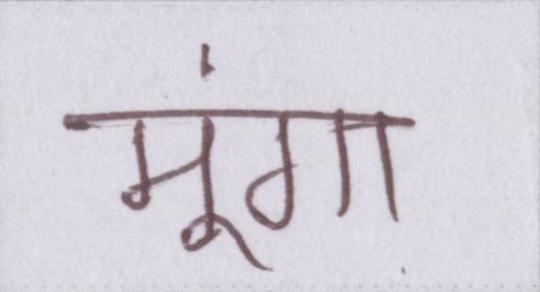 मूंगा